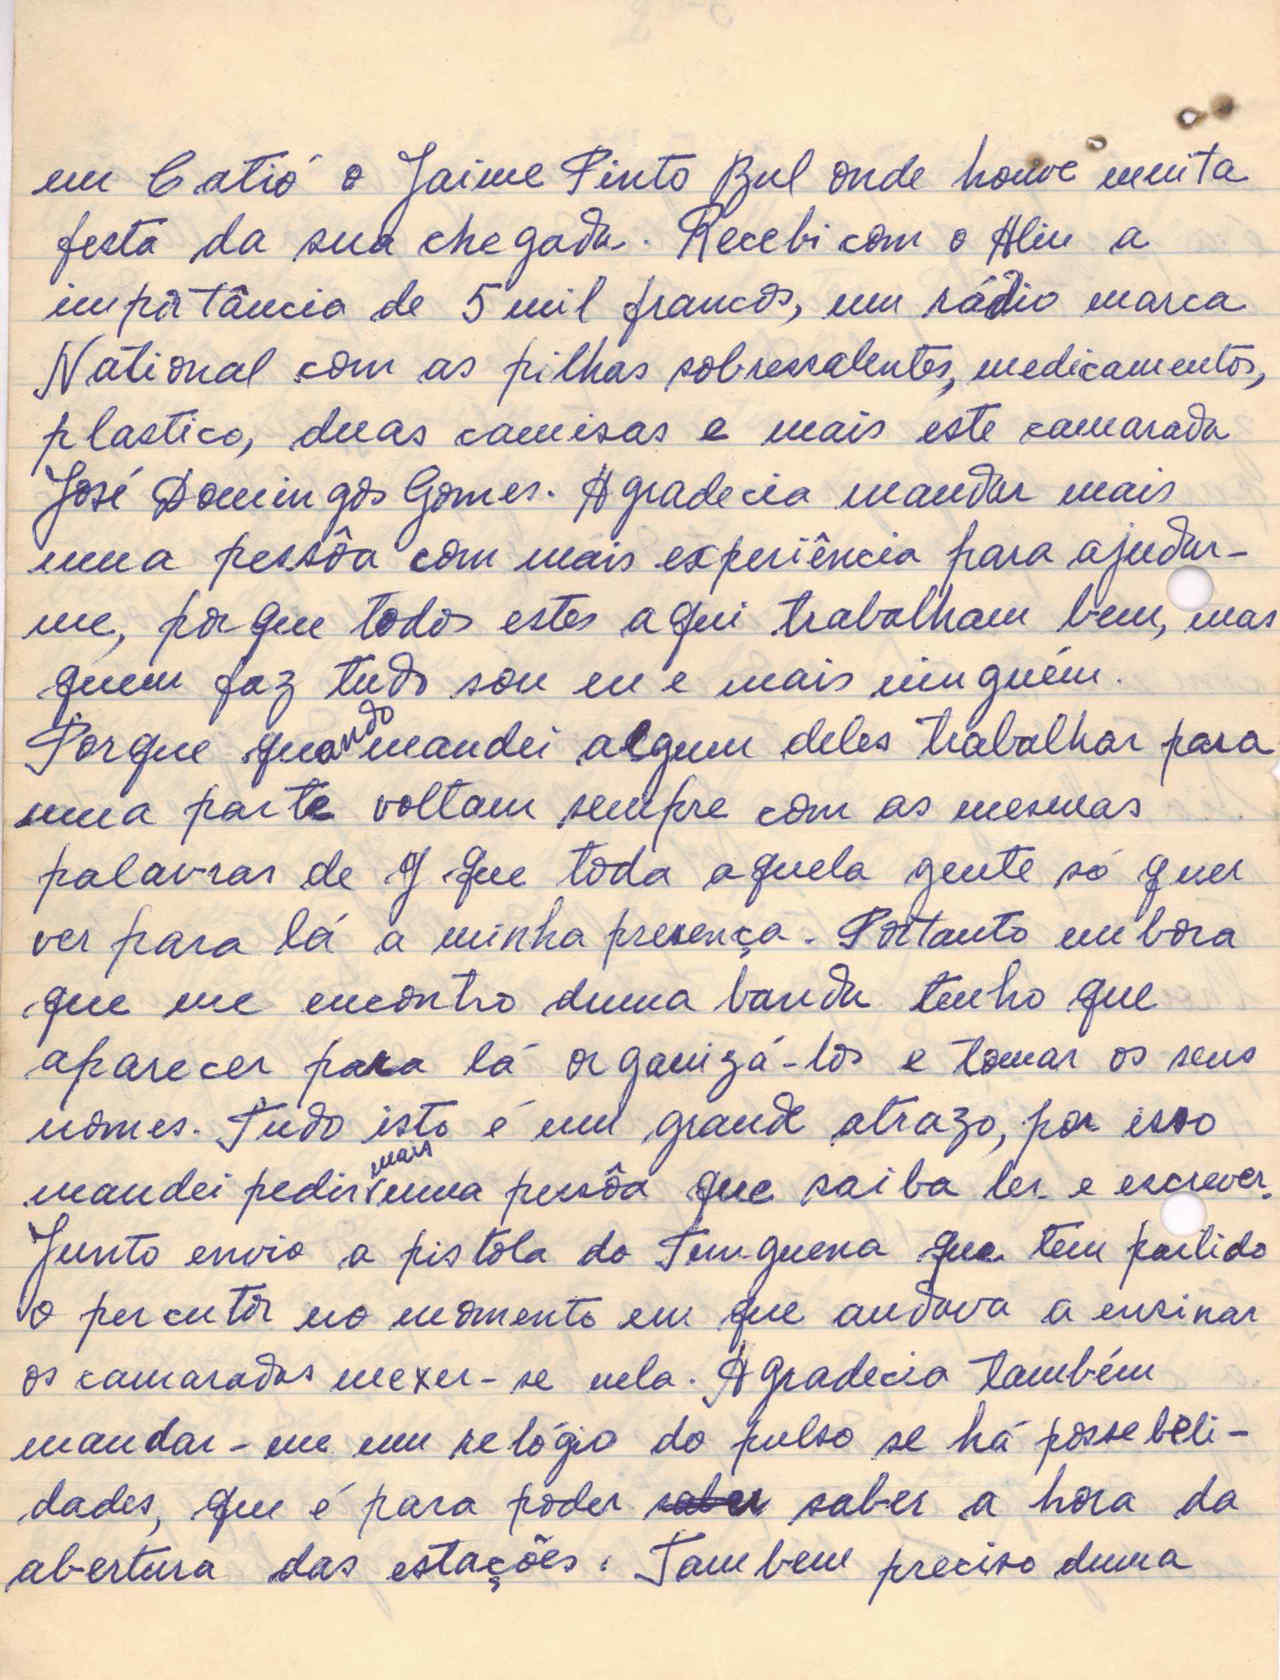 em Catió o Jaime Pinto Bul onde houve muita
festa da sua chegada. Recebi com o Aliu a
importância de 5 mil francos, um rádio marca
National com as pilhas sobressalentes, medicamentos,
plastico, duas camisas e mais este camarada
José Domingos Gomes. Agradecia mandar mais
uma pessôa com mais experiência para ajudar-
me, porque todos estes aqui trabalham bem, mas
quem faz tudo sou eu e mais ninguém.
Porque quando mandei algum deles trabalhar para
uma parte voltam sempre com as mesmas
palavras de que toda aquela gente só quer
ver para lá a minha presença. Portanto embora
que me encontro duma banda tenho que
aparecer para lá organizá-los e tomar os seus
nomes. Tudo isto é um grande atrazo, por isso
mandei pedir mais uma pessôa que saiba ler e escrever.
Junto envio a pistola do que tem partido
o percutor no momento em que andava a ensinar
os camaradas mexer-se nela. Agradecia também
mandar-me um relógio do pulso se há possebeli-
dades, que é para poder saber saber a hora da
abertura das estações. Tambem preciso duma